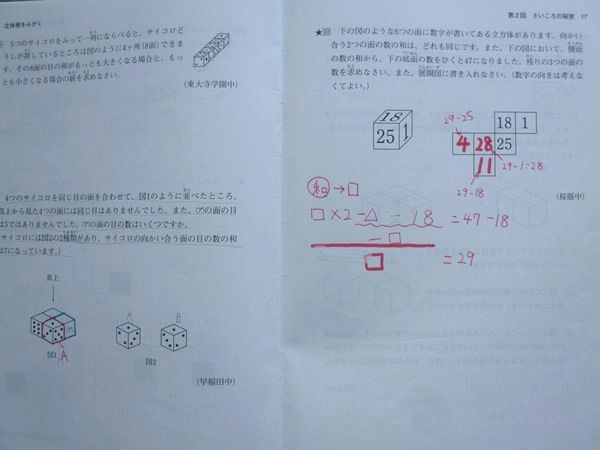 立体感をみがく
5つのサイコロをふって一列にならべると、サイコロど
うしが接しているところは図のように4ヶ所(8面)できま
す。その8面の目の和がもっとも大きくなる場合と、もっ
とも小さくなる場合の値を求めなさい。
(東大寺学園中)
4つのサイコロを同じ目の面を合わせて、図1のように並べたところ、
真上から見た4つの面には同じ目はありませんでした。また、(ア)の面の目
は5ではありませんでした。(ア)の面の目の数はいくつですか。
(サイコロには図2の2種類があり、サイコロの向かい合う面の目の数の和
は7になっています。)
真上
ア
A
B
図1
A
図2
(早稲田中)
第2回 さいころの秘密 17
下の図のような6つの面に数字が書いてある立方体があります。向かい
合う2つの面の数の和は、どれも同じです。また、下の図において、側面
の数の和から、下の底面の数をひくと47になりました。残りの3つの面の
数を求めなさい。また、展開図に書き入れなさい。(数字の向きは考えな
くてよい。)
18
25
1
29-25
18 1
4 28 25
11
29-1=28
29-18
(桜蔭中)
和→□
□×2-△-18=47-18
-□
□=29